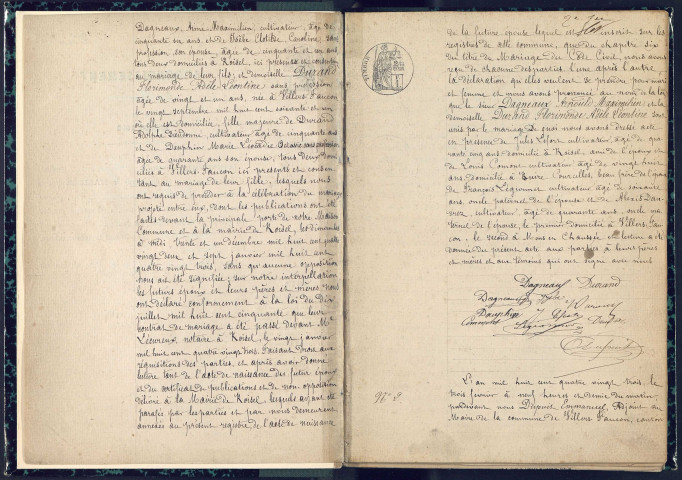 Dagneaux, Aimé Maximilien, cultivateur, âgé de
cinquante six ans et de Clotilde, Caroline, sans
profession, son épouse, âgée de cinquante et un ans,
tous deux domiciliés à Roisel, ici présents et consentant
au mariage de leur fils; et demoiselle Durand
Florimonde Adèle Léontine sans profession
âgée de vingt et un ans, née à Villers Faucon
le vingt septembre mil huit cent soixante et un
où elle est domiciliée, fille majeure de Durand
cultivateur âgé de cinquante ans
et de Dauphin Marie Léocadie Octavie sans profession
âgée de quarante ans son épouse, tous deux domi-
ciliés à Villers Faucon ici présents et consen-
tant au mariage de leur fille; lesquels nous
ont requis de procéder à la célébration du mariage
projeté entre eux, dont les publications ont été
faites devant la principale porte de notre Maison
Commune et à la mairie de Roisel, les dimanches
à midi, trente et un décembre mil huit cent quatre
vingt deux et sept janvier mil huit cent
quatre vingt trois, sans qu'aucune opposition
nous ait été signifiée; sur notre interpellation
les futurs époux et leurs pères et mères nous
ont déclaré conformément à la loi du dix
juillet mil huit cent cinquante que leur
contrat de mariage a été passé devant Me
Lécureux, notaire à Roisel, le vingt janvier
mil huit cent quatre vingt trois. Faisant droit aux
réquisitions des parties, et après avoir donné
lecture tant de l'acte de naissance des futur époux
et du certificat de publications et de non-opposition
délivré à la Mairie de Roisel, lesquels ayant été
parafés par les parties et par nous demeurent
annexés au présent registre de l'acte de naissance
2e
de la future épouse lequel est inscrit sur les
registres de cette commune, que du chapitre six
du titre du Mariage du Code Civil, nous avons
reçu de chacune des parties l'une après l'autre
la déclaration qu'elles veulent se prendre pour mari
et femme et nous avons prononcé au nom de la loi
que le sieur Dagneaux Maximilien et la
demoiselle Durand Florimonde Adèle Léontine sont
unis par le mariage. De quoi nous avons dressé acte
en présence de Jules Lefort cultivateur, âgé de qua-
rante cinq ans domicilié à Roisel, ami de l'époux et
de Louis Comont cultivateur âgé de vingt huit
ans domicilié à Courcelles, beau frère de l'époux
de François Légionnet cultivateur âgé de soixante
ans, oncle paternel de l'épouse et de
cultivateur, âgé de quarante ans, oncle ma-
ternel de l'épouse, le premier domicilié à Villers Fau-
con, le second à Mons en Chaussée et lecture a été
donnée du présent acte aux parties à leurs pères
et mères et aux témoins qui ont signé avec nous
Dagneaux Durand
Dagneaux
Dauphin
Comont
No 2
L'an mil huit cent quatre vingt trois, le
trois février à neuf heures et demie du matin
par devant nous Dupuis Emmanuel, Adjoint au
Maire de la commune de Villers Faucon, canton